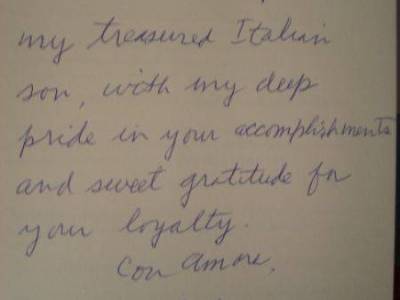 my treasured Italian
son, with my deep
pride in your accomplishments
and sweet gratitude for
your loyalty.
Con amore,